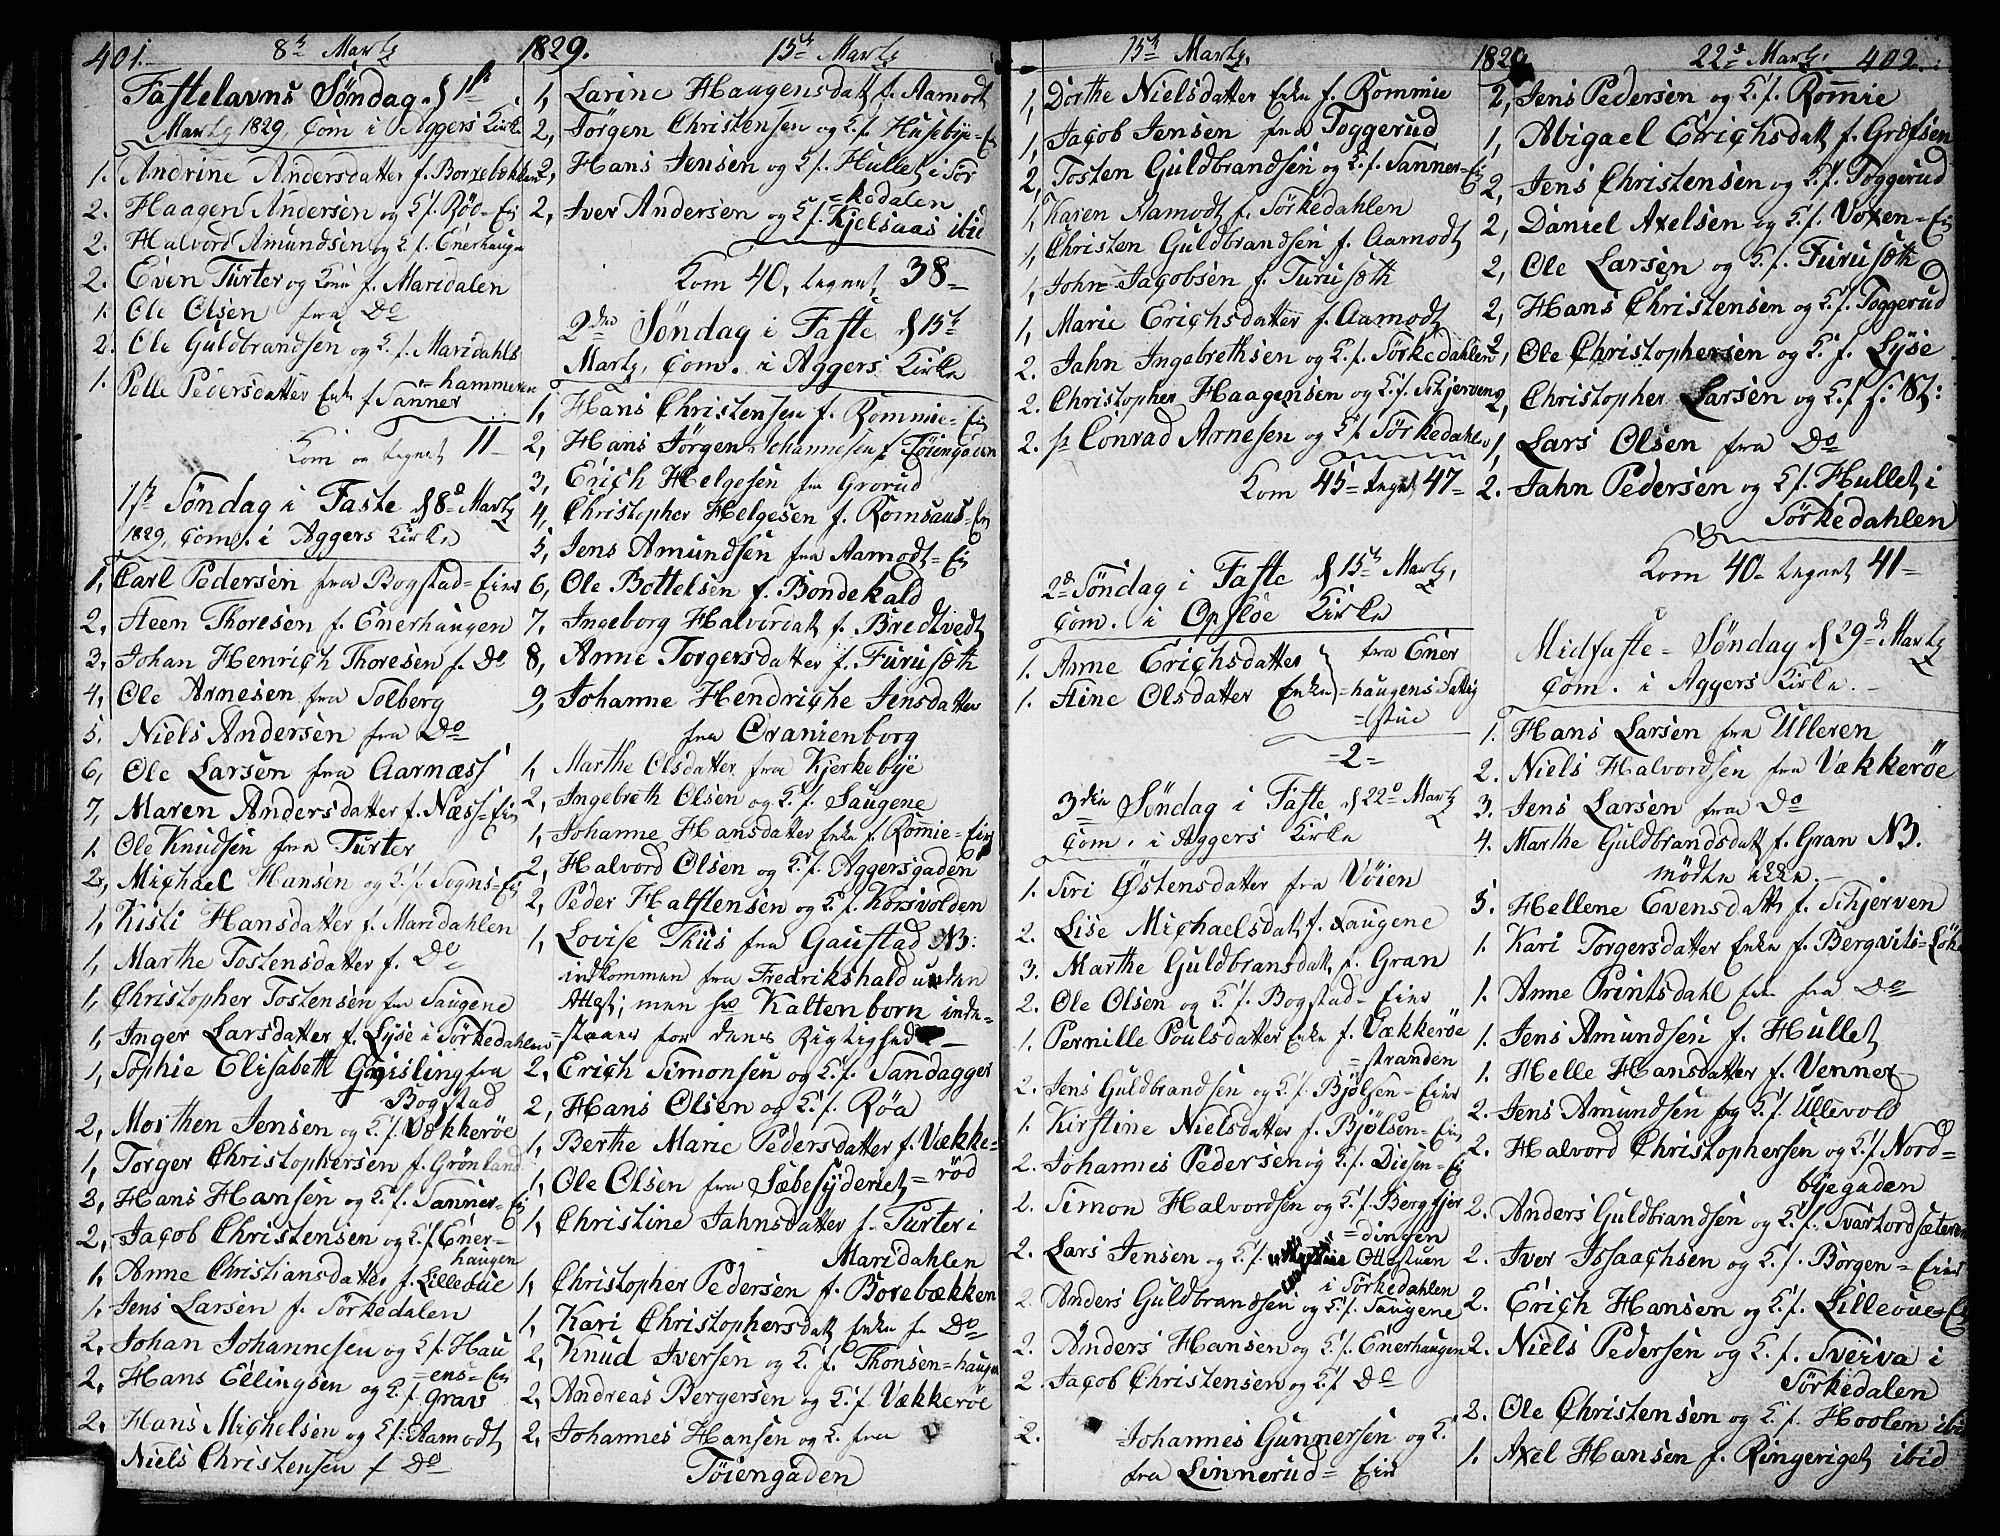 401. 8de Marty 1829. 15de Marty
Fastelavns Søndag d 1ste
Marty 1829, Com i Aggers Kirke
1. Andrine Andersdatter f. Borrebækken
2. Haagen Andersen og K. f. Rød=Ei
2. Halvord Amundsen og K. f. Enerhaug
2. Even Turter og Kone f. Maridalen
1. Ole Olsen fra Do
2. Ole Guldbrandsen og K. f. Maridahls
=hammeren
1. Pelle Pedersdatter Enke f Sanner
Kom og tegnet 11
1ste Søndag i Faste d 8de Marty
1829, Com. i Aggers Kirke
1, Carl Pedersen fra Bogstad=Eier
2, Steen Thoresen f. Enerhaugen
3, Johan Henrich Thoresen f. Do
4, Ole Arnesen fra Solberg
5. Niels Andersen fra Do
6, Ole Larsen fra Aarnæss
7, Maren Andersdatter f. Næss=Ei
1. Ole Knudsen fra Turter
2, Michael Hansen og K. f. Sogns=Ei
1, Kisti Hansdatter f. Maridahlen
1, Marthe Tostensdatter f. Do
1, Christopher Tostensen fra Saugene
1, Inger Larsdatter f. Lyse i Sørkedahlen
1, Sophie Elisabeth Gjisling fra
Bogstad
2, Morthen Jensen og K. f. Vækkerøe
1, Torger Christophersen f. Grønland
3, Hans Hansen og K. f. Sanner=Ei
2, Jacob Christensen og K. f. Ener=
haugen
1, Anne Christiansdatter f. Lillevue
1, Jens Larsen f. Sørkedalen
2, Johan Johannesen og K. f. Hau
=ens=Ei
2, Hans Ellingsen og K. f. Grav
2, Hans Michelsen og K. f. Aamodt
Niels Christensen f Do
1, Larine Haagensdatt f. Aamodt
2, Jørgen Christensen og K. f. Husebye=Ei
2, Hans Jensen og K. f. Hullet i Sør
=kedalen
2, Iver Andersen og K. f. Kjelsaas ibid
Kom 40, tegnet 38=
2den Søndag i Faste d 15de
Marty, Com. i Aggers Kirke
1, Hans Christensen f. Rommie=Ei
2, Hans Jørgen Johannesen f. Tøiengaden
3, Erich Helgesen fra Grorud
4, Christopher Helgesen f. Romsaas=Ei
5, Jens Amundsen fra Aamodt=Ei
6, Ole Bottelsen f. Bondekald
7. Ingeborg Halvordatt f. Bredtvedt
8, Anne Torgersdatter f. Furusæth
9, Johanne Hendriche Jensdatter
fra Oranienborg
1, Marthe Olsdatter fra Kjerkebye
2, Ingebreth Olsen og K. f. Saugene
1, Johanne Hansdatter Enke f. Rommie=Eier
2, Halvord Olsen og K. f. Aggersgaden
2, Peder Halfstensen og K. f. Korsvolden
1, Lovise Thiis fra Gaustad NB:
indkommen fra Fredrikshald uden
Attest; men Hr Kaltenborn inde=
=staaer for denes Rigtighed
2, Erich Simonsen og K. f. Sandagger
2, Hans Olsen og K. f. Røa
1, Berthe Marie Pedersdatter f. Vække=
=rød
1, Ole Olsen fra Sæbesyderiet
1, Christine Jahnsdatter f. Turter i
Maridahlen
1, Christopher Pedersen f. Borebækken
1, Kari Christophersdatt Enke fra Do
2, Knud Iversen og K. f. Thonsen=haugen
2, Andreas Bergersen og K. f. Vækkerøe
2, Johannes Hansen og K. fra
Tøiengaden
15de Marty. 1829 22de Marty. 402.
1, Dorthe Nielsdatter Enke f. Rommie
1, Jacob Jensen fra Toggerud
2, Tosten Guldbrandsen og K. f. Sanner=Ei
1, Karen Aamodt f. Sørkedahlen
1, Christen Guldbrandsen f. Aamodt
1, John Jacobsen f. Furusæth
1, Marie Erichsdatter f. Aamodt
2. Jahn Ingebrethsen og K. f. Sørkedahlen
2. Christopher Haagensen og K. f. Skjerven
2. Conrad Arnesen og K. f. Sørkedahlen
Kom 45= tegnet 47=
2de Søndag i Faste d 15de Marty,
Com. i Opsloe Kirke
1. Anne Erichsdatter fra Ener
1. Stine Olsdatter Enke =haugens Fattig
=stue
=2=
3die Søndag i Faste d 22de Marty
Com. i Aggers Kirke
1. Siri Østensdatter fra Vøien
2. Lise Michaelsdatt f. Saugene
3. Marthe Guldbransdatt f. Gran
2. Ole Olsen og K. f. Bogstad=Eier
1. Pernille Poulsdatter Enke f. Vækkerøe
=stranden
2. Jens Guldbrandsen og K. f. Bjølsen=Eier
1. Kirstine Nielsdatter f. Bjølsen=Ei
2. Johannes Pedersen og K. f. Diesen=Ei
2. Simon Halvordsen og K. f. Bergfjer
=dingen
2. Lars Jensen og K. f. Ottestuen
i Sørkedahlen
2. Anders Guldbrandsen og K. f. Saugene
2. Anders Hansen og K. f. Enerhaugen
2. Jacob Christensen og K. f. Do
2. Johannes Gunnersen og K.
fra Linnerud=Eier
2, Jens Pedersen og K. f. Rommie
1, Abigael Erichsdatt f. Græfsen
2, Jens Christensen og K. f. Toggerud
2, Daniel Axelsen og K. f. Voxen=Ei
2, Ole Larsen og K. f. Furusæth
2, Hans Christensen og K. f. Toggerud
2, Ole Christophersen og K. f. Lyse
2, Christopher Larsen og K. f. f. St:
1, Lars Olsen fra Do
2. Jahn Pedersen og K. f. Hullet i
Sørkedahlen
Kom 40= tegnet 41=
Midfaste=Søndag d 29de Marty
Com. i Aggers Kirke.
1. Hans Larsen fra Ulleren
2. Niels Halvordsen fra Vækkerøe
3. Jens Larsen fra Do
4. Marthe Guldbrandsdatt f. Gran NB.
mødte ikke.
5. Hellene Evensdatt f. Skjerven
1. Kari Torgersdatter Enke f. Bergvits=Løke
1. Anne Printsdahl Enke fra Do
1. Jens Amundsen f. Hullet
1. Helle Hansdatter f. Venner
2. Jens Amundsen og K. f. Ullevold
2. Halvord Christophersen og K. f. Nord=
byegaden
2. Anders Guldbrandsen og K. f. Svartordsæteren
2. Iver Issaachsen og K. f. Borgen=Eier
2. Erich Hansen og K. f. Lillevue=Ei
2. Niels Pedersen og K. f. Sverva i
Sørkedalen
2. Ole Christensen og K. f. Hoolen ibid
1. Axel Hansen f. Ringeriget ibid